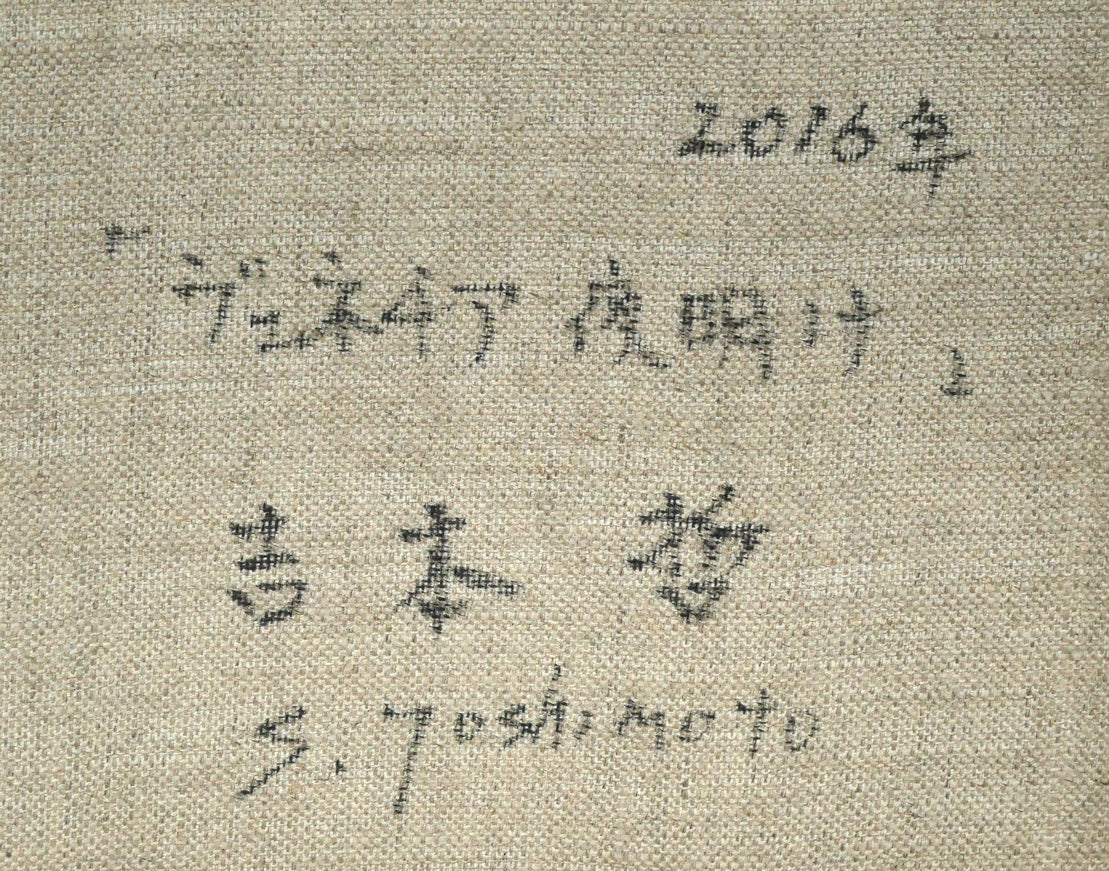 2016年
「ヴェネイア夜明け」
吉本 哲
S. Yoshimoto